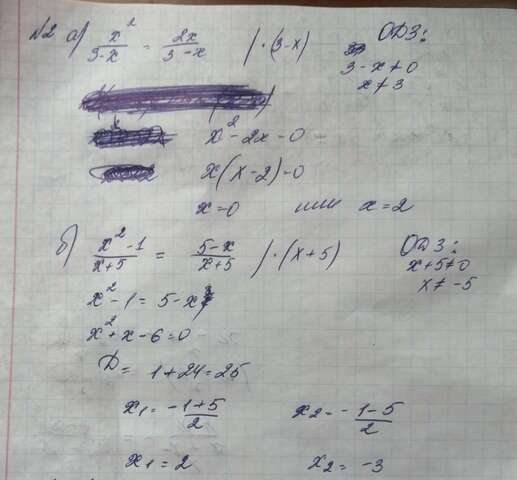 №2 а) x²/3-x = 2x/3-x | · (3-x) ОДЗ:
3-x≠0
x≠3
x²-2x=0
x(x-2)=0
x=0 или x=2
б) x²-1/x+5 = 5-x/x+5 | · (x+5) ОДЗ:
x+5≠0
x≠-5
x²-1=5-x
x²+x-6=0
D= 1+24=25
x₁= -1+5/2 x₂= -1-5/2
x₁=2 x₂= -3